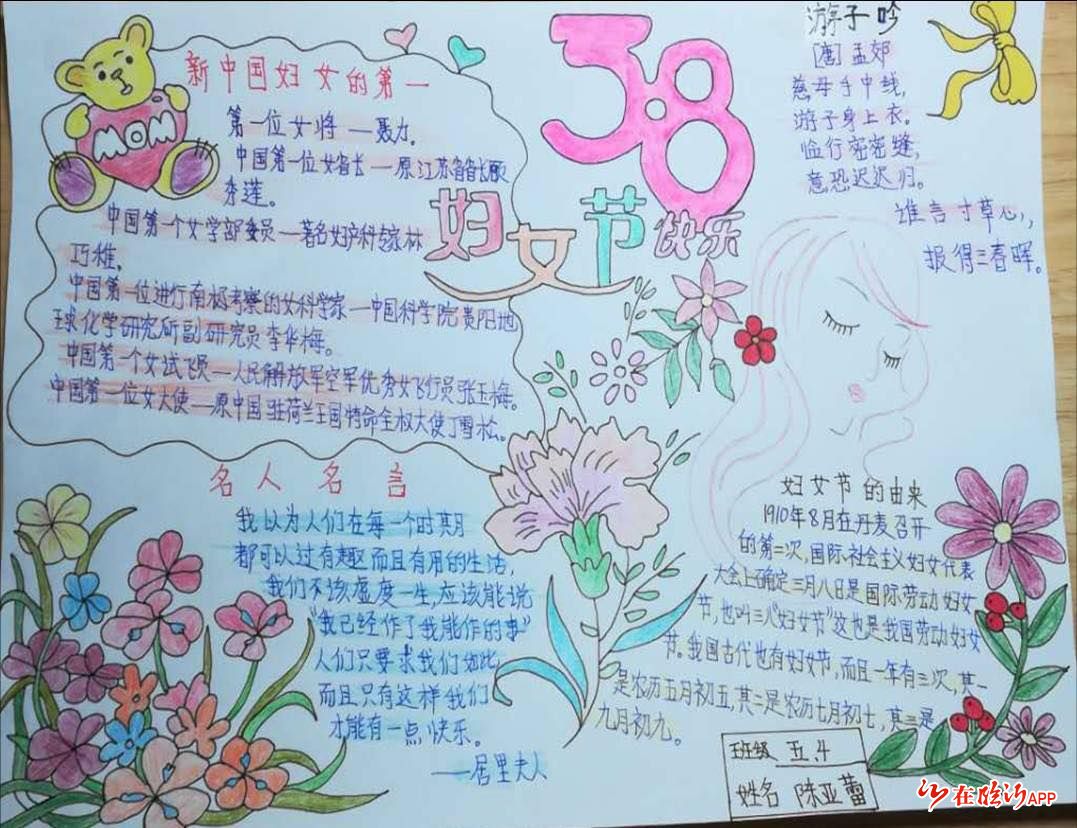 MOM
新中国妇女的第一
第一位女将—聂力。
中国第一位女省长—原江苏省省长顾
秀莲。
中国第一个女学部委员—著名妇产科专家林
巧稚。
中国第一位进行南极考察的女科学家—中国科学院贵阳地
球化学研究所副研究员李华梅。
中国第一个女试飞员—人民解放军空军优秀女飞行员张玉梅。
中国第一位女大使—原中国驻荷兰王国特命全权大使丁雪松。
3.8
妇女节快乐
游子吟
[唐]孟郊
慈母手中线,
游子身上衣。
临行密密缝,
意恐迟迟归。
谁言寸草心,
报得三春晖。
名人名言
我以为人们在每一个时期
都可以过有趣而且有用的生活,
我们不该虚度一生,应该能说
"我已经作了我能作的事"
人们只要求我们如此
而且只有这样我们
才能有一点快乐。
——居里夫人
妇女节的由来
1910年8月在丹麦召开
的第二次,国际社会主义妇女代表
大会上确定三月八日是国际劳动妇女
节,也叫三八"妇女节"这也是我国劳动妇女
节。我国古代也有妇女节,而且一年有三次,其一
是农历五月初五,其二是农历七月初七,其三是
九月初九。
班级 五.4
姓名 陈亚蕾
在临沂APP